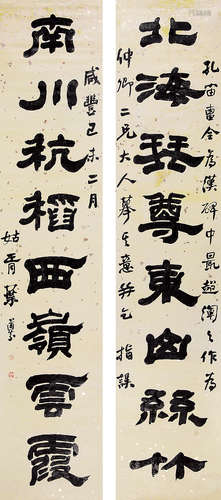 孔宙曹全為漢碑中最超闊之作為
北海琹尊東山絲竹
仲卿二兄大人摹其意并乞 指謬
咸豐己未二月
南川秔稻西嶺雲霞
姑胥葉道芬